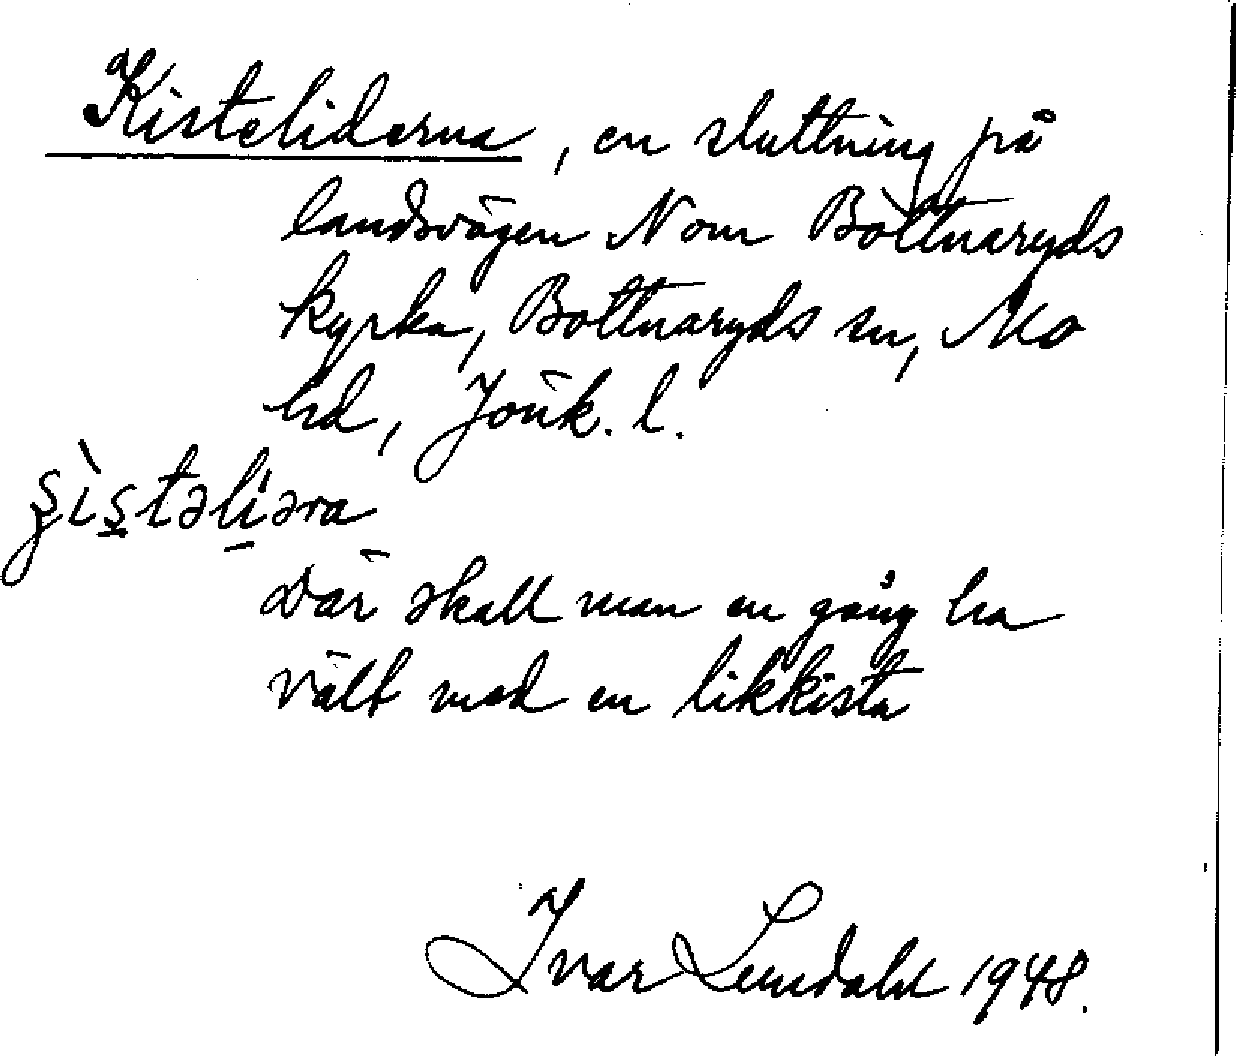 Kisteliderna, en sluttning på
landsvägen N om Bottnaryds
kyrka, Bottnaryds sn, Mo
hd, Jönk. l.
Där skall man en gång ha
vält med en likkista
Ivar Lundahl 1948.